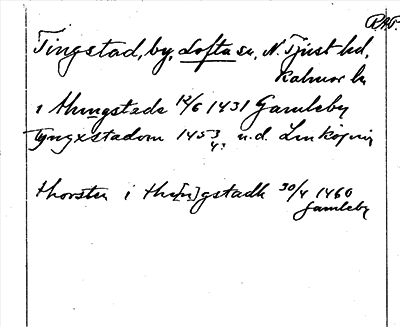 RAP.
Tingstad, by, Lofta sn, N. Tjust hd,
Kalmar län
i thingstade 12/6 1431 Gamleby
Tyngxstadom 1453 u.d. Linköping
thorsten i the[n]gstadh 30/4 1460
Gamleby